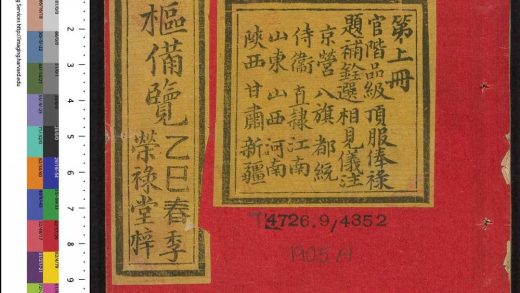 第上冊
官階品級頂服俸祿
題補銓選相見儀注
京營八旗都統
侍衞直隸江南
山東山西河南
陝西甘肅新疆
樞備覽
乙巳春季
榮祿堂梓
T4726.9/4352
1905
g Services http://imaging.harvard.edu
2
3
4
5
6
7
8
9